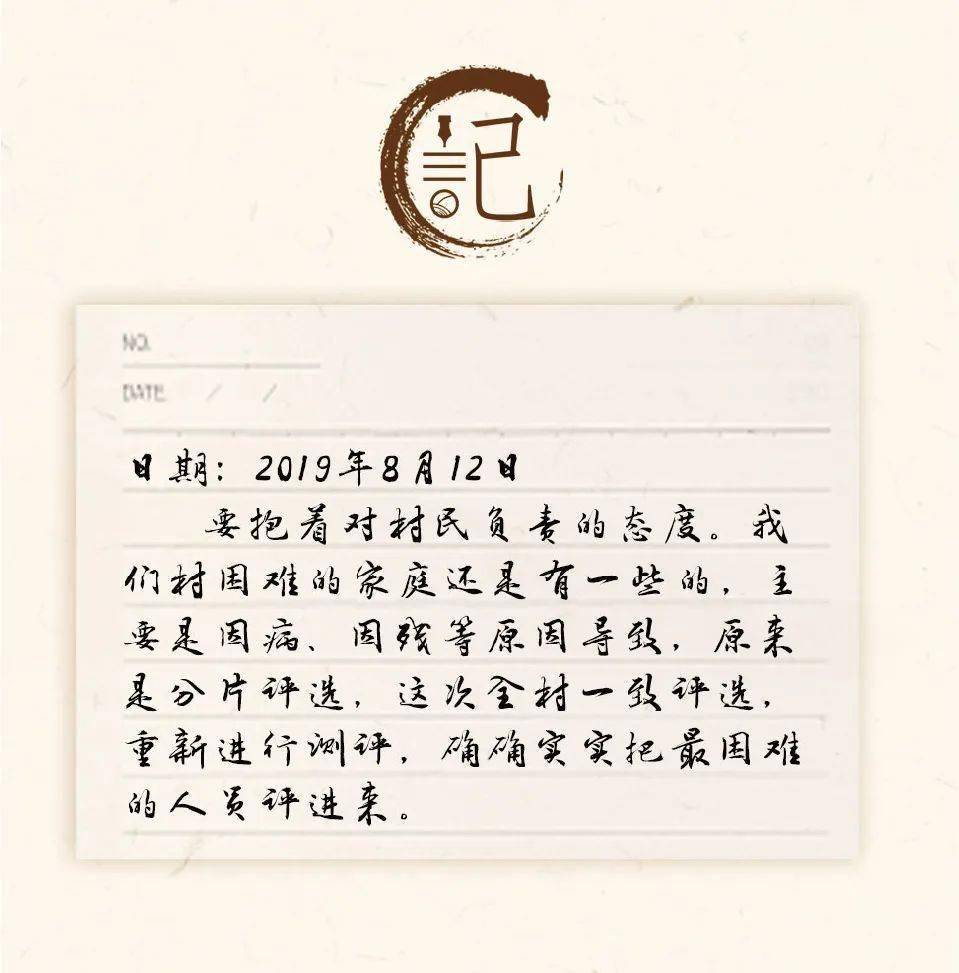 記
NO.
DATE / /
日期：2019年8月12日
要抱着对村民负责的态度。我
们村困难的家庭还是有一些的，主
要是因病、因残等原因导致，原来
是分片评选，这次全村一致评选，
重新进行测评，确确实实把最困难
的人员评进来。